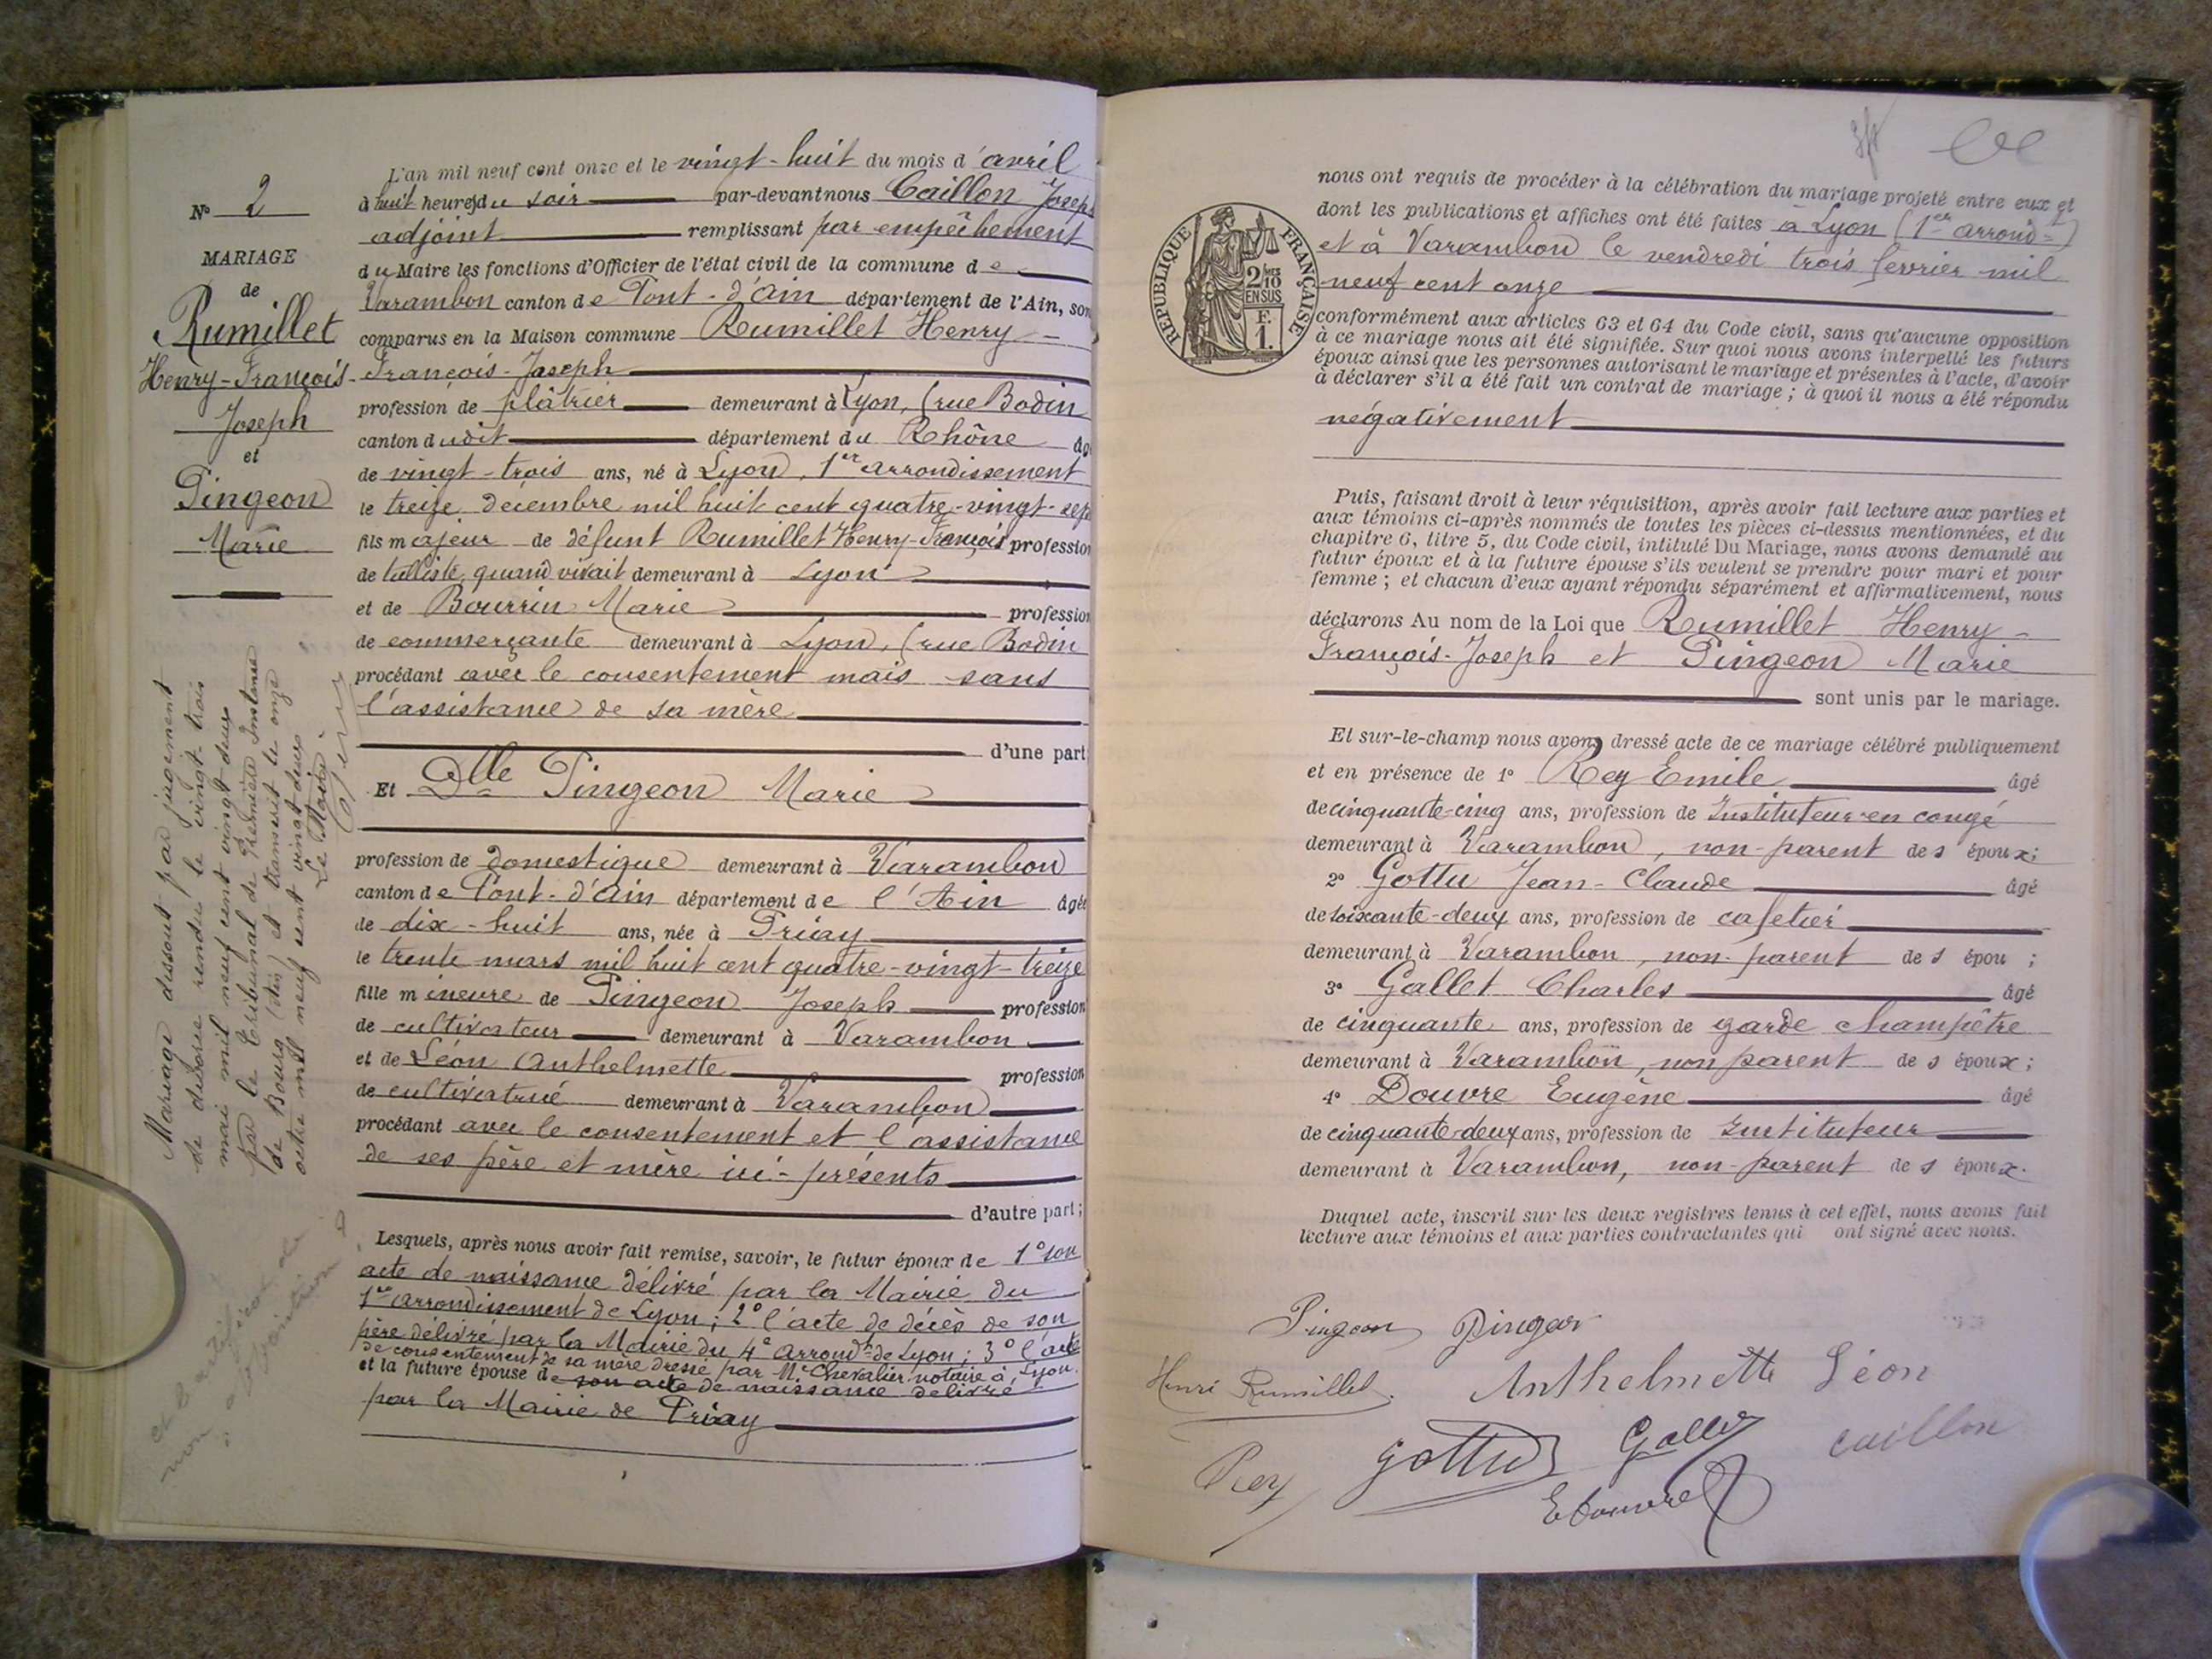 N° 2
MARIAGE
de
Rumillet
Henry-François-
Joseph
et
Pingeon
Marie
Mariage dissout par jugement
de divorce rendu le vingt-trois
mai mil neuf cent vingt deux
par le Tribunal de Première Instance
de Bourg (Ain) et transcrit le onze
octre mil neuf cent vingt deux
Le Maire
L'an mil neuf cent onze et le vingt-huit du mois d'avril
à huit heures du soir par-devant nous Caillon Joseph
adjoint remplissant par empêchement
du Maire les fonctions d'Officier de l'état civil de la commune de
Varambon canton de Pont-d'Ain département de l'Ain, son
comparus en la Maison commune Rumillet Henry-
François-Joseph
profession de plâtrier demeurant à Lyon, (rue Bodin
canton dudit département du Rhône âg
de vingt-trois ans, né à Lyon, 1er arrondissement
le treize décembre mil huit cent quatre-vingt-sept
fils majeur de défunt Rumillet Henry-François profession
de tulliste, quand vivait demeurant à Lyon
et de Bourrin Marie profession
de commerçante demeurant à Lyon, (rue Bodin
procédant avec le consentement mais sans
l'assistance de sa mère
d'une part
Et Dlle Pingeon Marie
profession de domestique demeurant à Varambon
canton de Pont-d'Ain département de l'Ain âgé
de dix-huit ans, née à Priay
le trente mars mil huit cent quatre-vingt-treize
fille mineure de Pingeon Joseph profession
de cultivateur demeurant à Varambon
et de Léon Anthelmette profession
de cultivatrice demeurant à Varambon
procédant avec le consentement et l'assistance
de ses père et mère ici-présents
d'autre part;
Lesquels, après nous avoir fait remise, savoir, le futur époux de 1° son
acte de naissance délivré par la Mairie du
1er arrondissement de Lyon; 2° l'acte de décès de son
père délivré par la Mairie du 4e arrondt de Lyon; 3° l'acte
de consentement de sa mère dressé par Me Chevalier notaire à Lyon.
et la future épouse de son acte de naissance délivré
par la Mairie de Priay
REPUBLIQUE FRANÇAISE
2/10 EN SUS
F. 1.
nous ont requis de procéder à la célébration du mariage projeté entre eux et
dont les publications et affiches ont été faites à Lyon (1er arrondt)
et à Varambon le vendredi trois février mil
neuf cent onze
conformément aux articles 63 et 64 du Code civil, sans qu'aucune opposition
à ce mariage nous ait été signifiée. Sur quoi nous avons interpellé les futurs
époux ainsi que les personnes autorisant le mariage et présentes à l'acte, d'avoir
à déclarer s'il a été fait un contrat de mariage; à quoi il nous a été répondu
négativement
Puis, faisant droit à leur réquisition, après avoir fait lecture aux parties et
aux témoins ci-après nommés de toutes les pièces ci-dessus mentionnées, et du
chapitre 6, titre 5, du Code civil, intitulé Du Mariage, nous avons demandé au
futur époux et à la future épouse s'ils veulent se prendre pour mari et pour
femme; et chacun d'eux ayant répondu séparément et affirmativement, nous
déclarons Au nom de la Loi que Rumillet Henry-
François-Joseph et Pingeon Marie
sont unis par le mariage.
Et sur-le-champ nous avons dressé acte de ce mariage célébré publiquement
et en présence de 1° Rey Emile âgé
de cinquante-cinq ans, profession de Instituteur en congé
demeurant à Varambon, non-parent des époux;
2° Gottu Jean-Claude âgé
de soixante-deux ans, profession de cafetier
demeurant à Varambon, non-parent des épou ;
3° Gallet Charles âgé
de cinquante ans, profession de garde champêtre
demeurant à Varambon, non parent des époux;
4° Douvre Eugène âgé
de cinquante-deux ans, profession de Instituteur
demeurant à Varambon, non-parent des époux.
Duquel acte, inscrit sur les deux registres tenus à cet effet, nous avons fait
lecture aux témoins et aux parties contractantes qui ont signé avec nous.
Pingeon Pingeon
Henri Rumillet. Anthelmette Léon
Rey Gottu Gallet Caillon
E Douvre